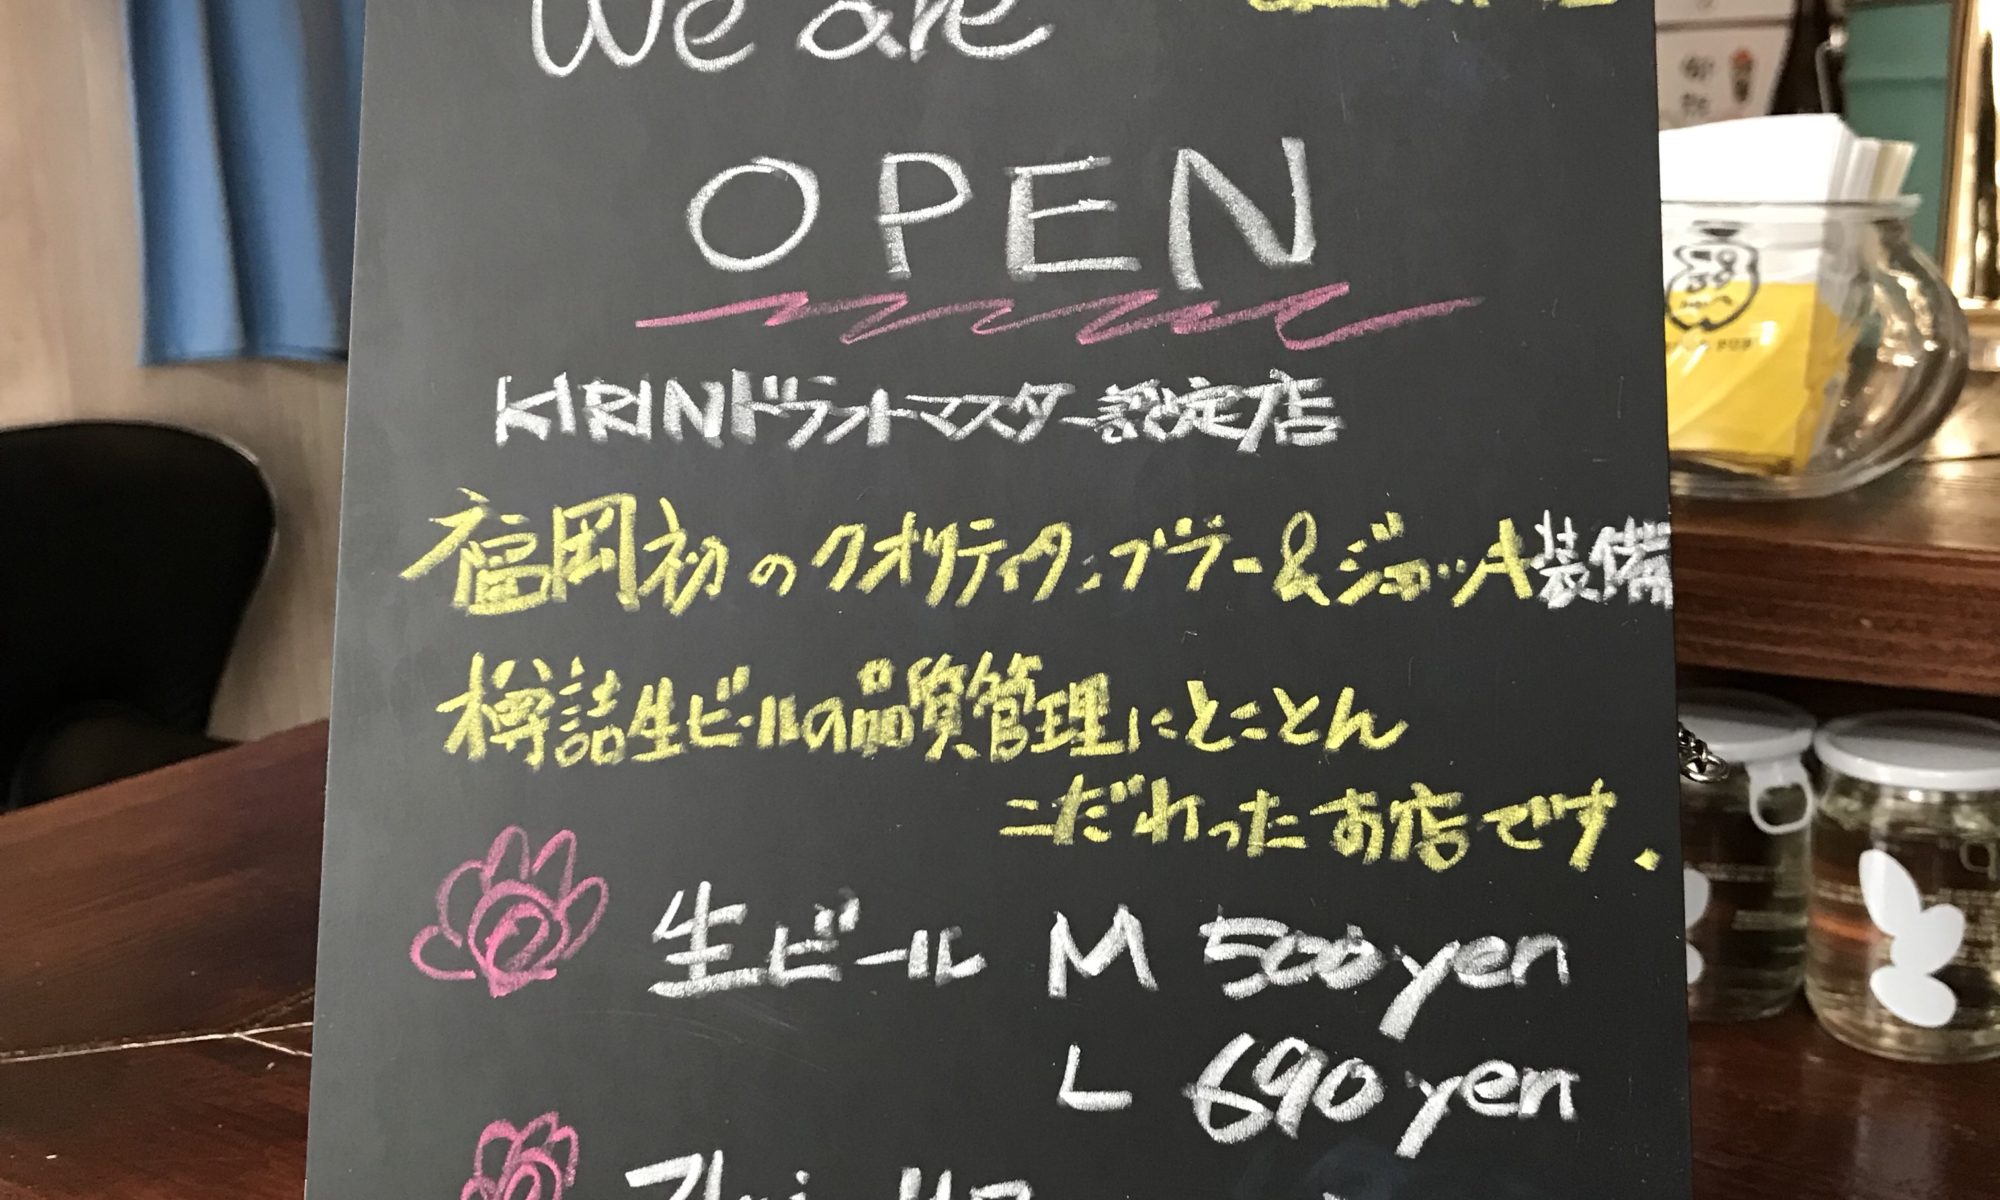 We are
OPEN
KIRINドラフトマスター認定店
福岡初のクオリティタンブラー&ジョッキ装備
樽詰生ビールの品質管理にとことん
こだわったお店です.
生ビール M 500yen
L 690yen